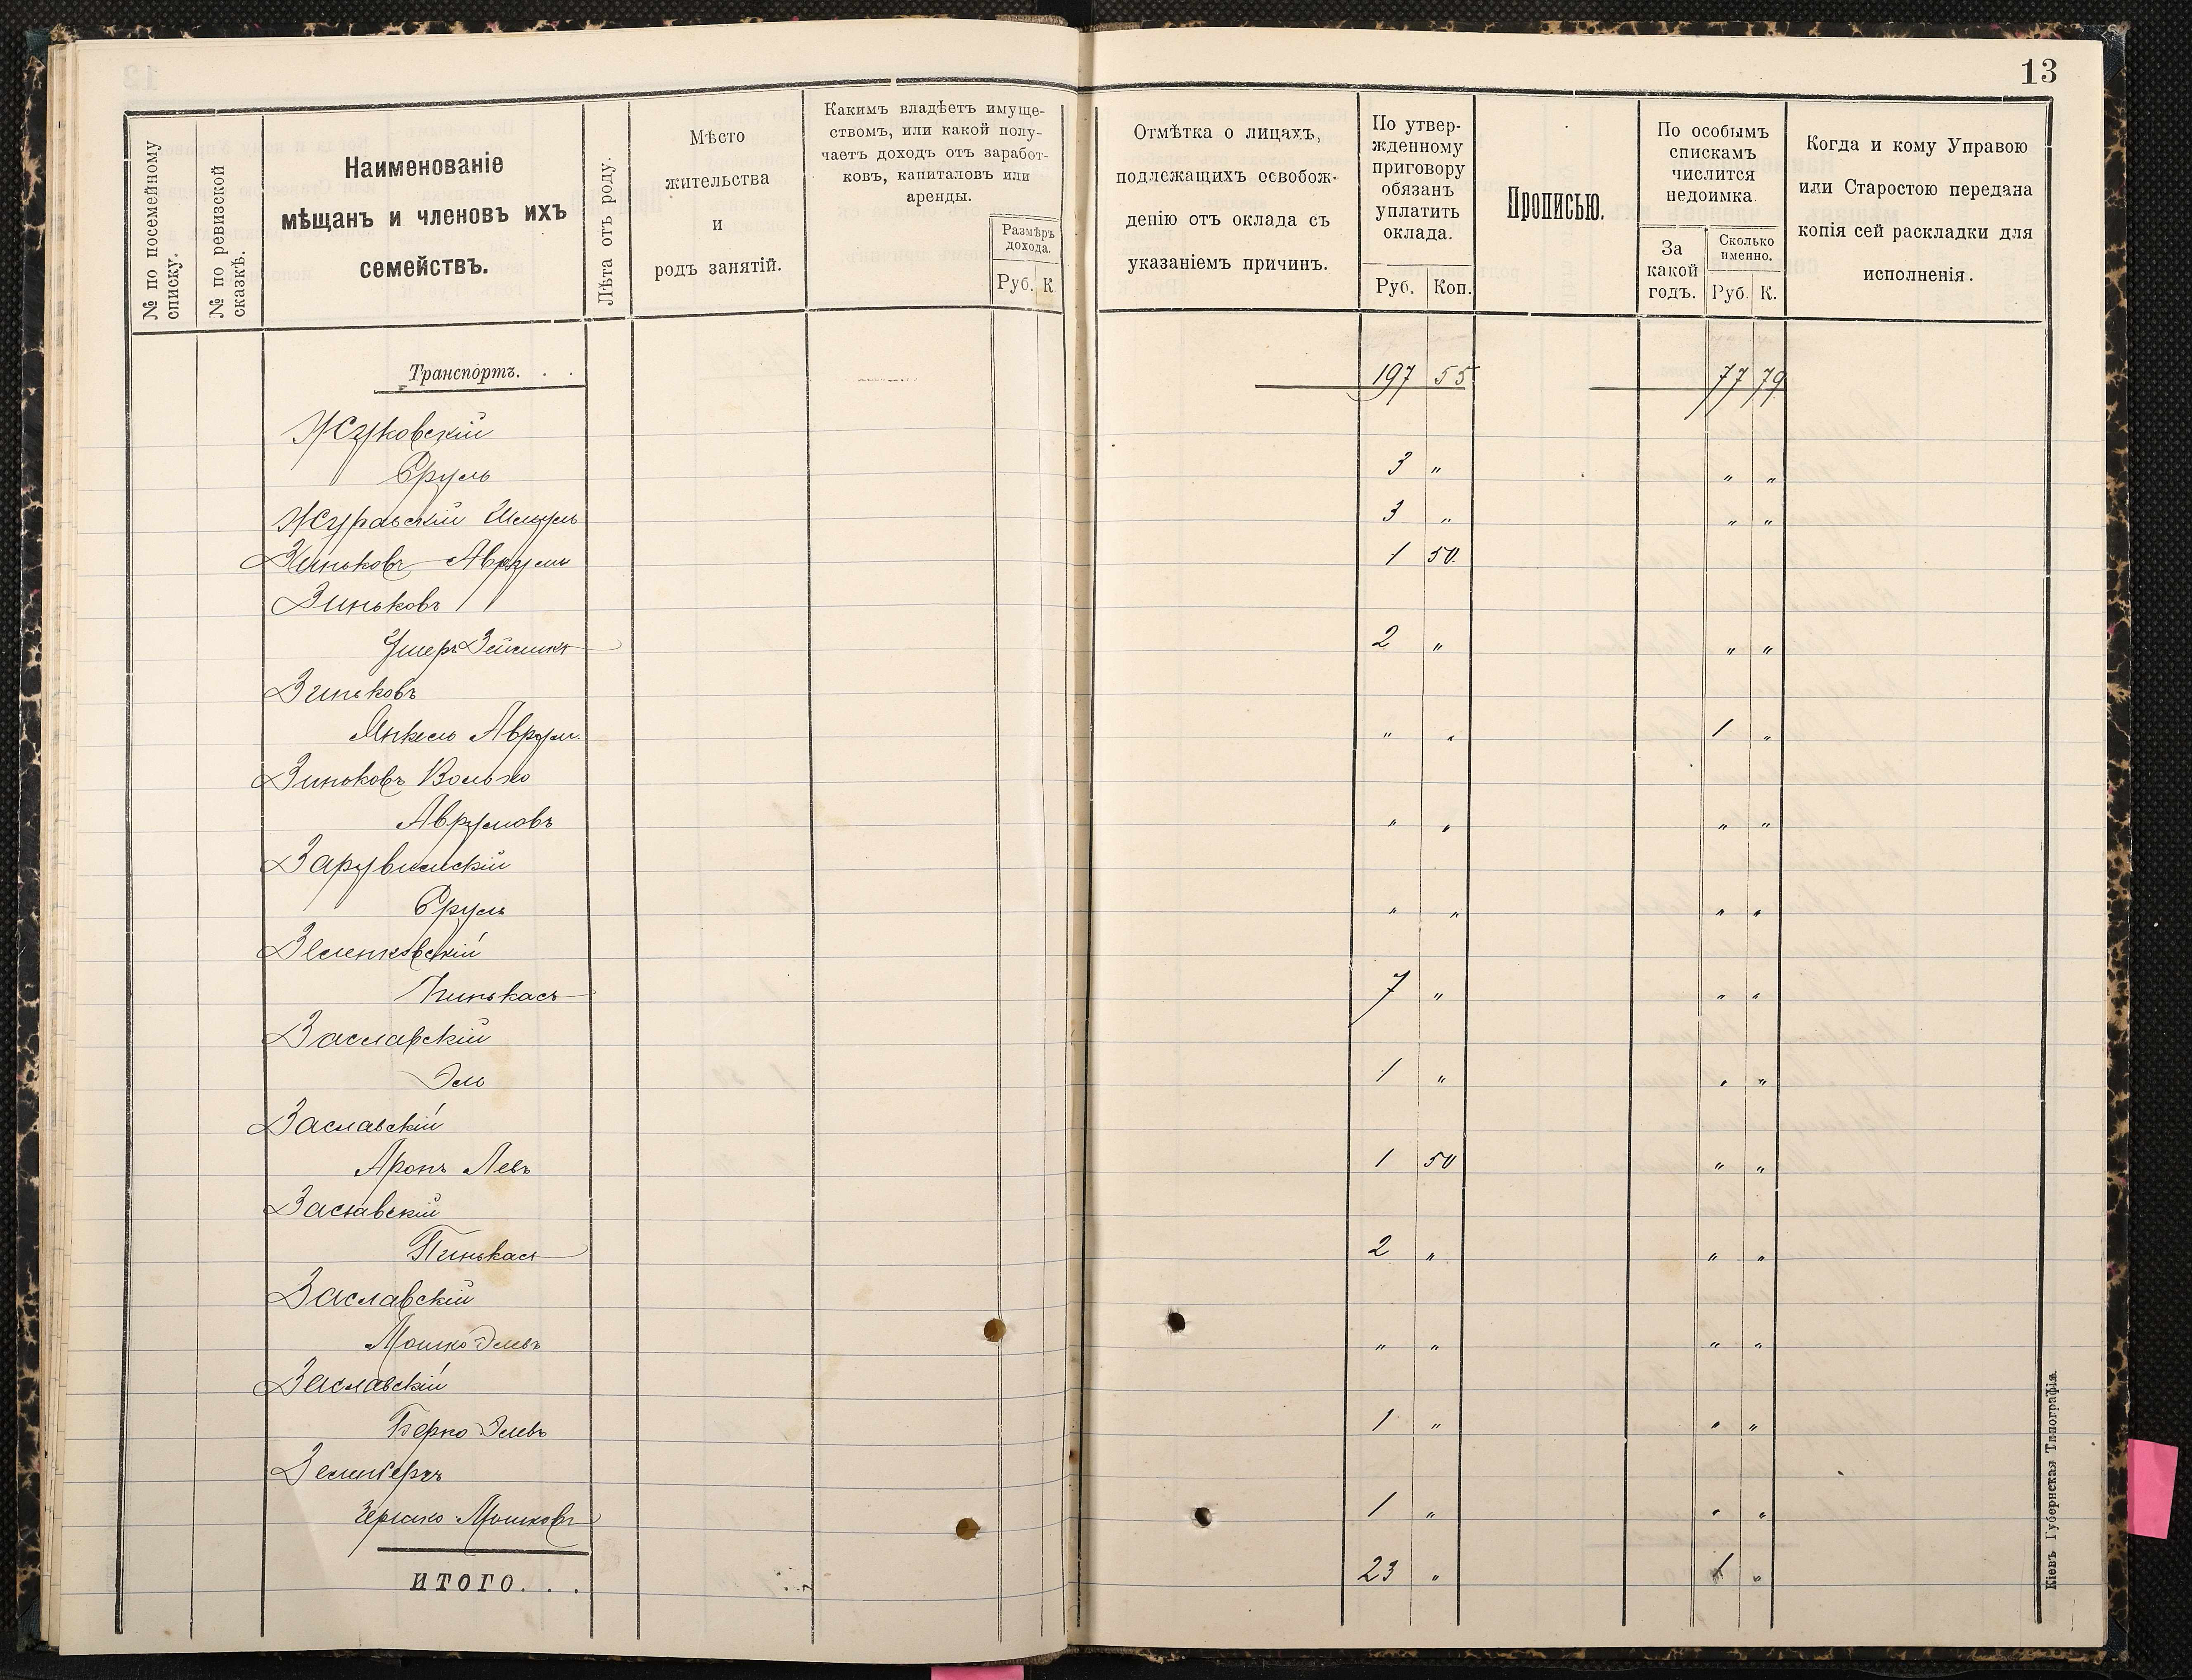 13
№ по посемейному списку.
№ по ревизской сказкѣ.
Наименованіе
мѣщанъ и членовъ ихъ
семействъ.
Лѣта отъ роду.
Мѣсто
жительства
и
родъ занятій.
Какимъ владѣетъ имуще-
ствомъ, или какой полу-
чаетъ доходъ отъ заработ-
ковъ, капиталовъ или
аренды.
Размѣръ
дохода.
Руб. К
Отмѣтка о лицахъ,
подлежащихъ освобож-
денію отъ оклада съ
указаніемъ причинъ.
По утвер-
жденному
приговору
обязанъ
уплатить
оклада.
Руб. Коп.
Прописью.
По особымъ
спискамъ
числится
недоимка.
За
какой
годъ.
Сколько
именно.
Руб. К.
Когда и кому Управою
или Старостою передана
копія сей раскладки для
исполненія.
Транспортъ. . . 197 55 77 79
Жуковскій
Сруль 3 „ „ „
Журавскій Шмуль 3 „ „ „
Зиньковъ Аврумъ 1 50.
Зиньковъ
Ушеръ Зейликъ 2 „ „ „
Зиньковъ
Янкель Аврум. „ „ 1 „
Зиньковъ Волько
Аврумовъ „ „ „ „
Сруль „ „ „ „
Пинькасъ 7 „ „ „
Заславскій
Эль 1 „ „ „
Заславскій
Аронъ Левъ 1 50 „ „
Заславскій
Пинькасъ 2 „ „ „
Заславскій
Мошко Элевъ „ „ „ „
Заславскій
Берко Элевъ 1 „ „ „
Гершко Мошковъ 1 „ „ „
ИТОГО. . . 23 „ 1 „
Кіевъ Губернская Типографія